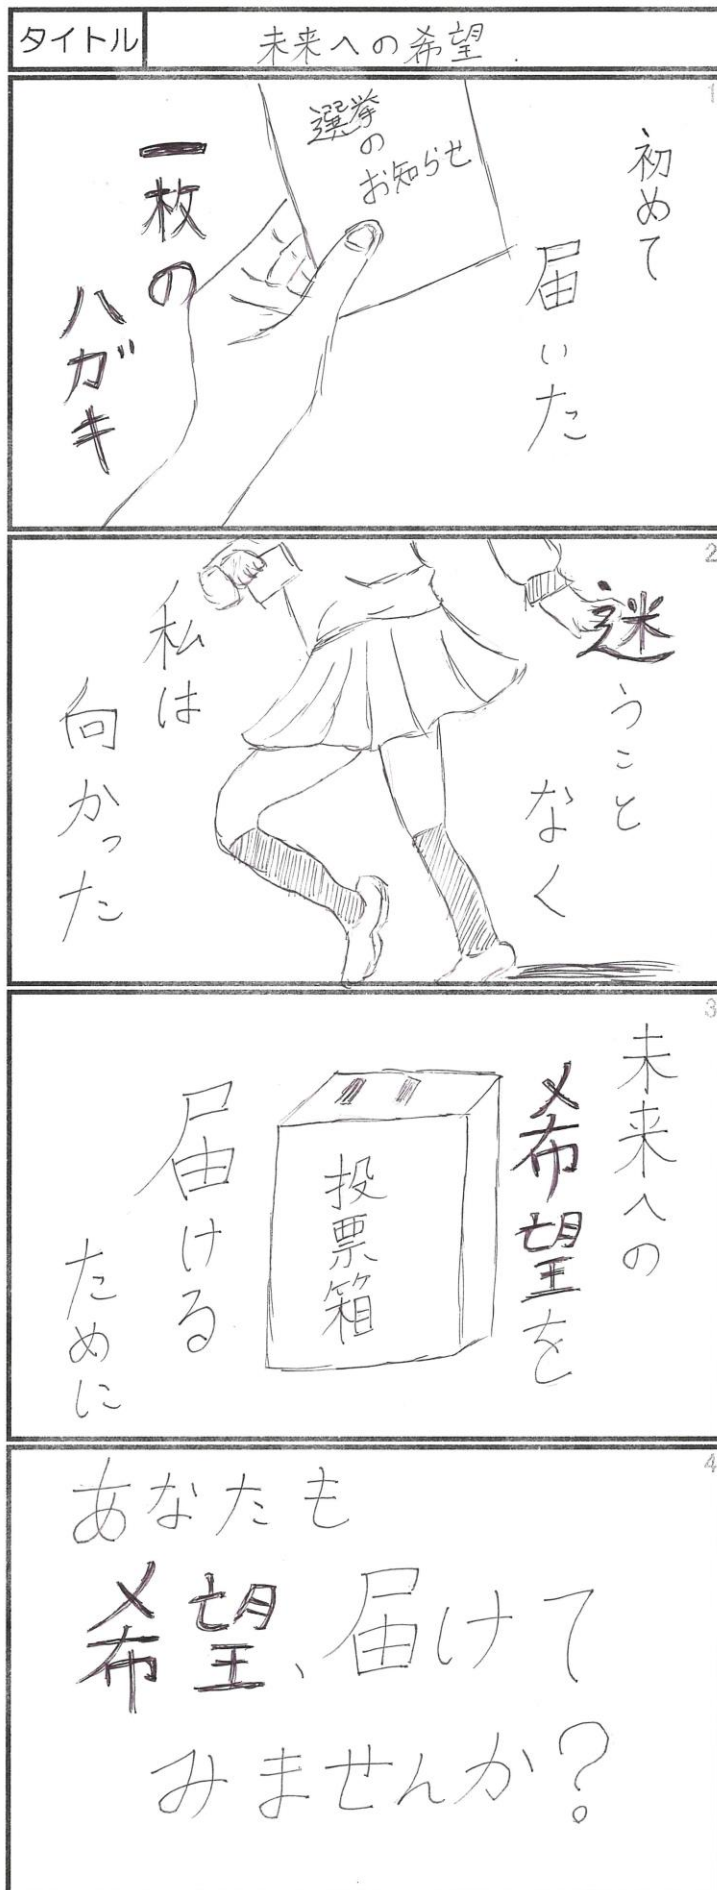 タイトル
未来への希望
1
初めて
届いた
選挙
の
お知らせ
一枚の
ハガキ
2
迷うこと
なく
私は
向かった
3
未来への
希望を
投票箱
届ける
ために
4
あなたも
希望、届けて
みませんか？